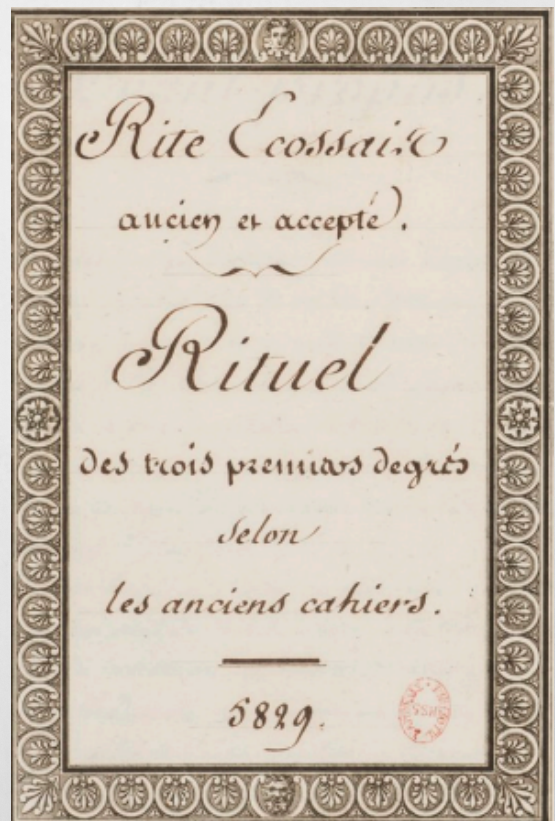 Rite Ecossais
ancien et accepté.
Rituel
des trois premiers degrés
selon
les anciens cahiers.
5829.